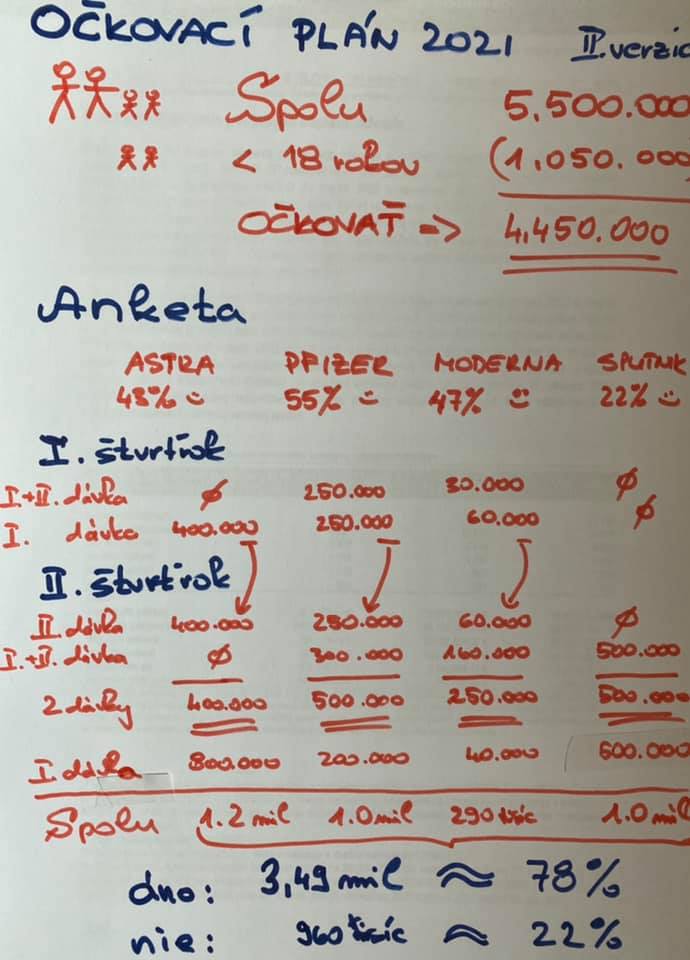 OČKOVACÍ PLÁN 2021 II.verzia
Spolu 5,500.000
< 18 rokov (1,050.000
OČKOVAŤ => 4,450.000
Anketa
ASTRA PFIZER MODERNA SPUTNIK
43% 55% 47% 22%
I. štvrťrok
I.+II. dávka ∅ 250.000 30.000 ∅
I. dávka 400.000 250.000 60.000 ∅
II. štvrťrok
II. dávka 400.000 250.000 60.000 ∅
I.+II. dávka ∅ 300.000 160.000 500.000
2 dávky 400.000 500.000 250.000 500.000
I. dávka 800.000 200.000 40.000 600.000
Spolu 1.2 mil 1.0 mil 290 tisíc 1.0 mil
áno: 3,49 mil ≈ 78%
nie: 960 tisíc ≈ 22%